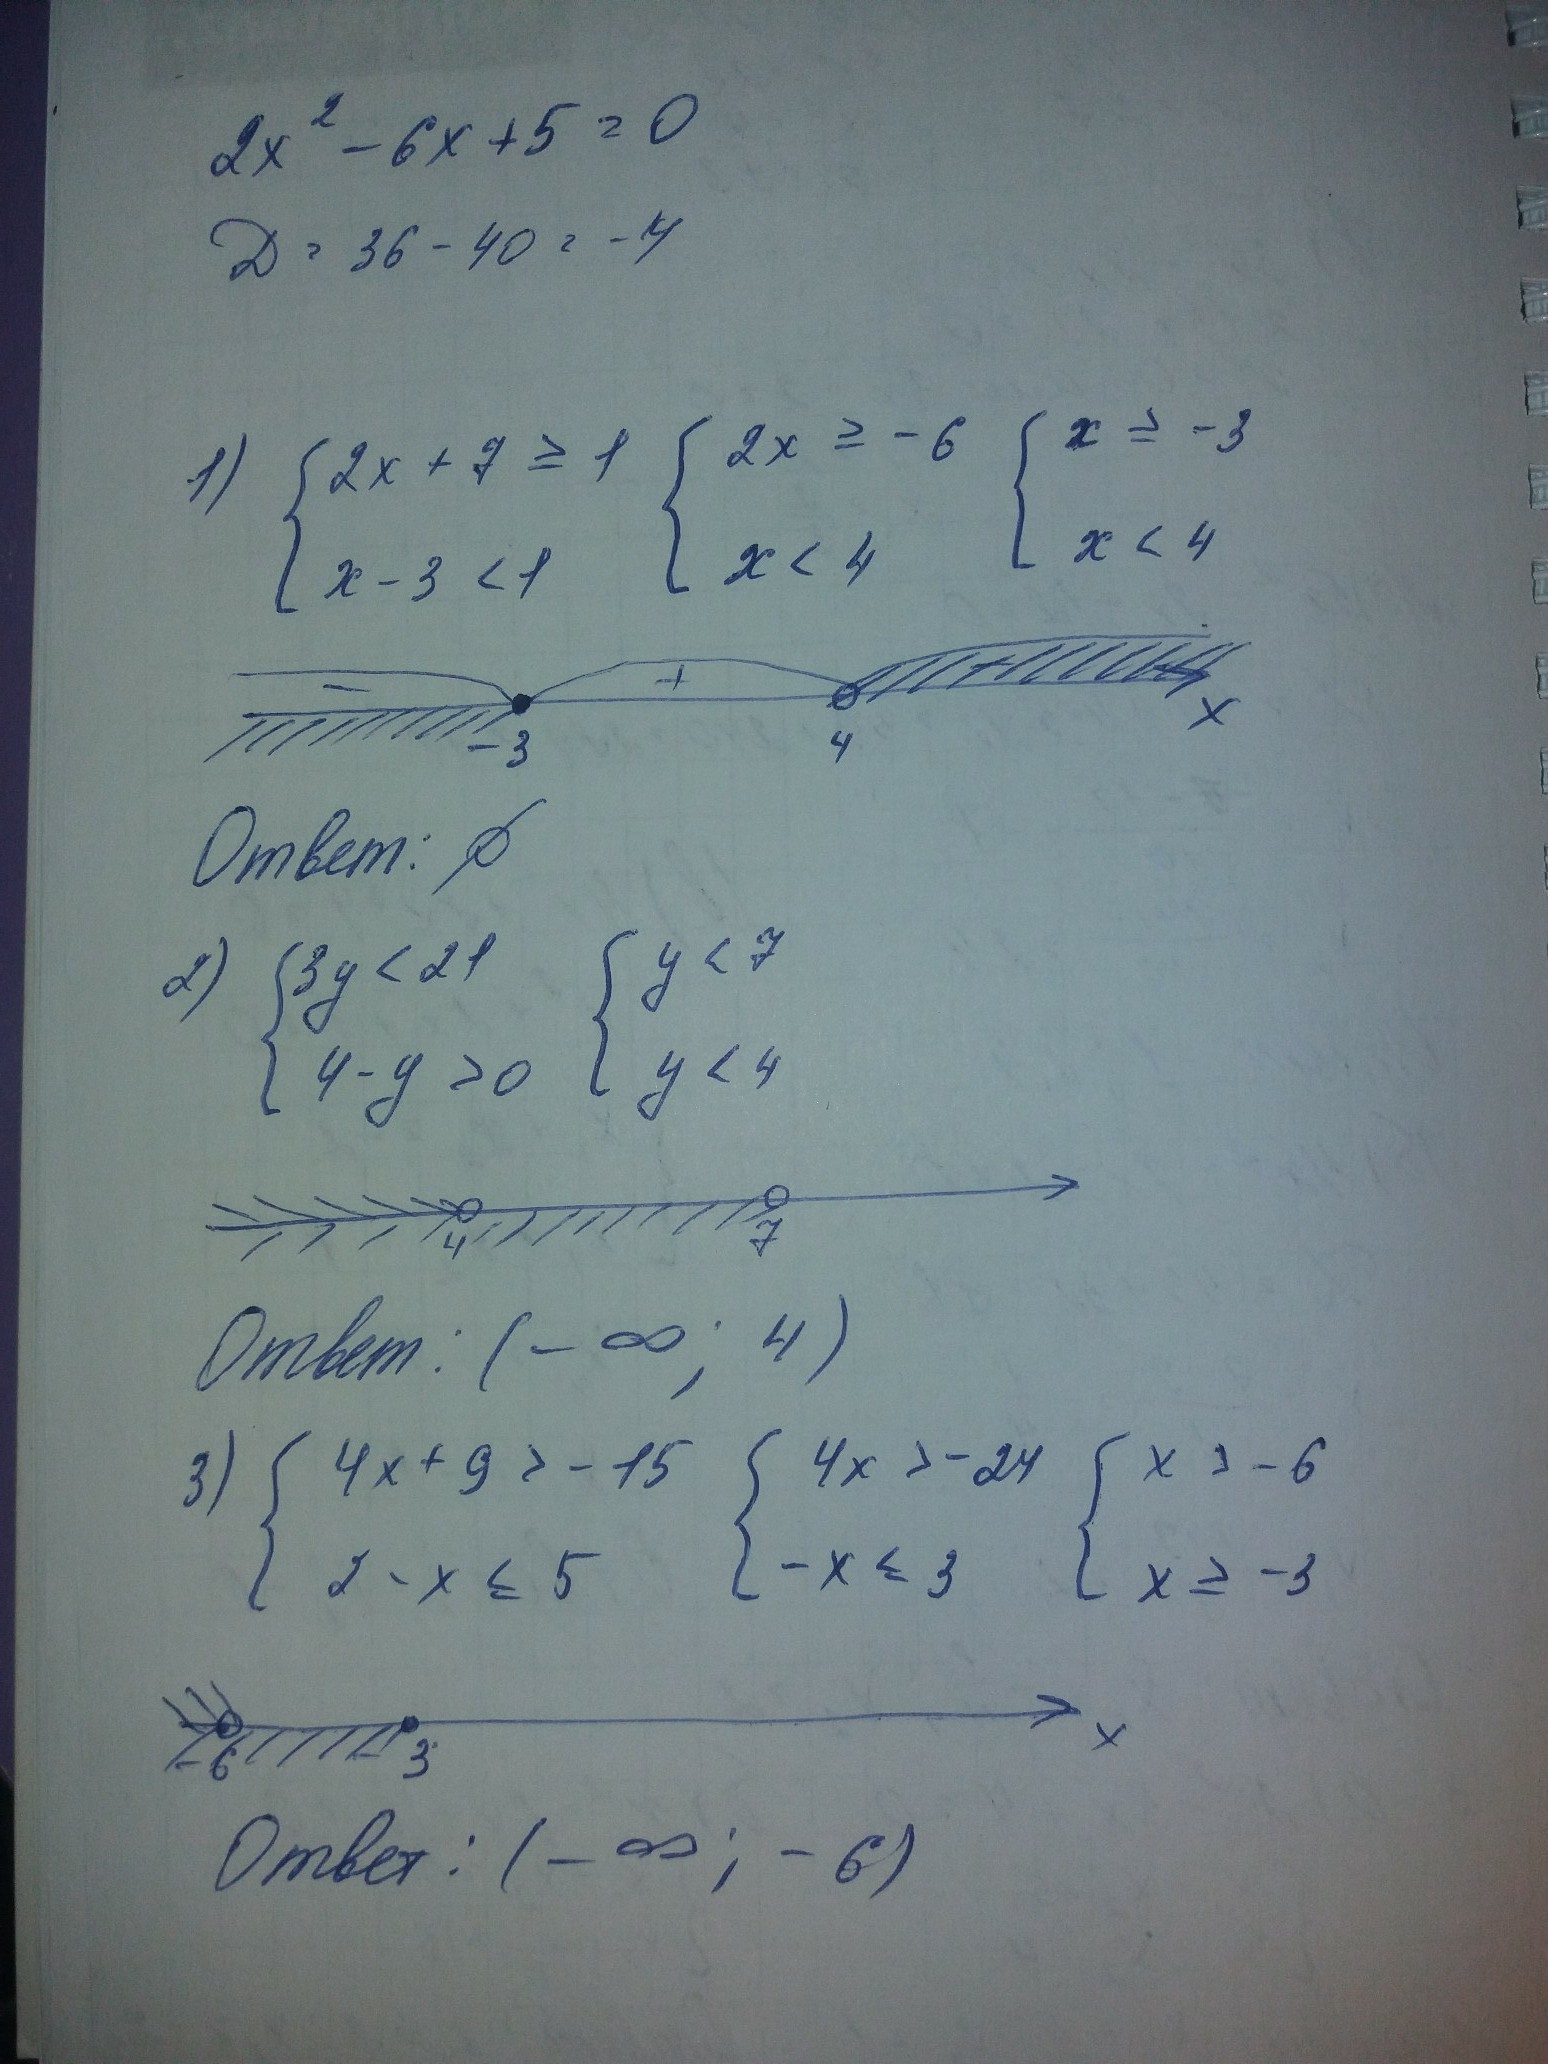 2x² - 6x + 5 = 0
D = 36 - 40 = -4
1) { 2x + 7 ≥ 1 { 2x ≥ -6 { x ≥ -3
x - 3 < 1 x < 4 x < 4
- + +
-3 4 x
Ответ: ∅
2) { 3y < 21 { y < 7
4 - y > 0 y < 4
4 7
Ответ: (-∞; 4)
3) { 4x + 9 > -15 { 4x > -24 { x > -6
2 - x ≤ 5 -x ≤ 3 x ≥ -3
-6 -3 x
Ответ: (-∞; -6)